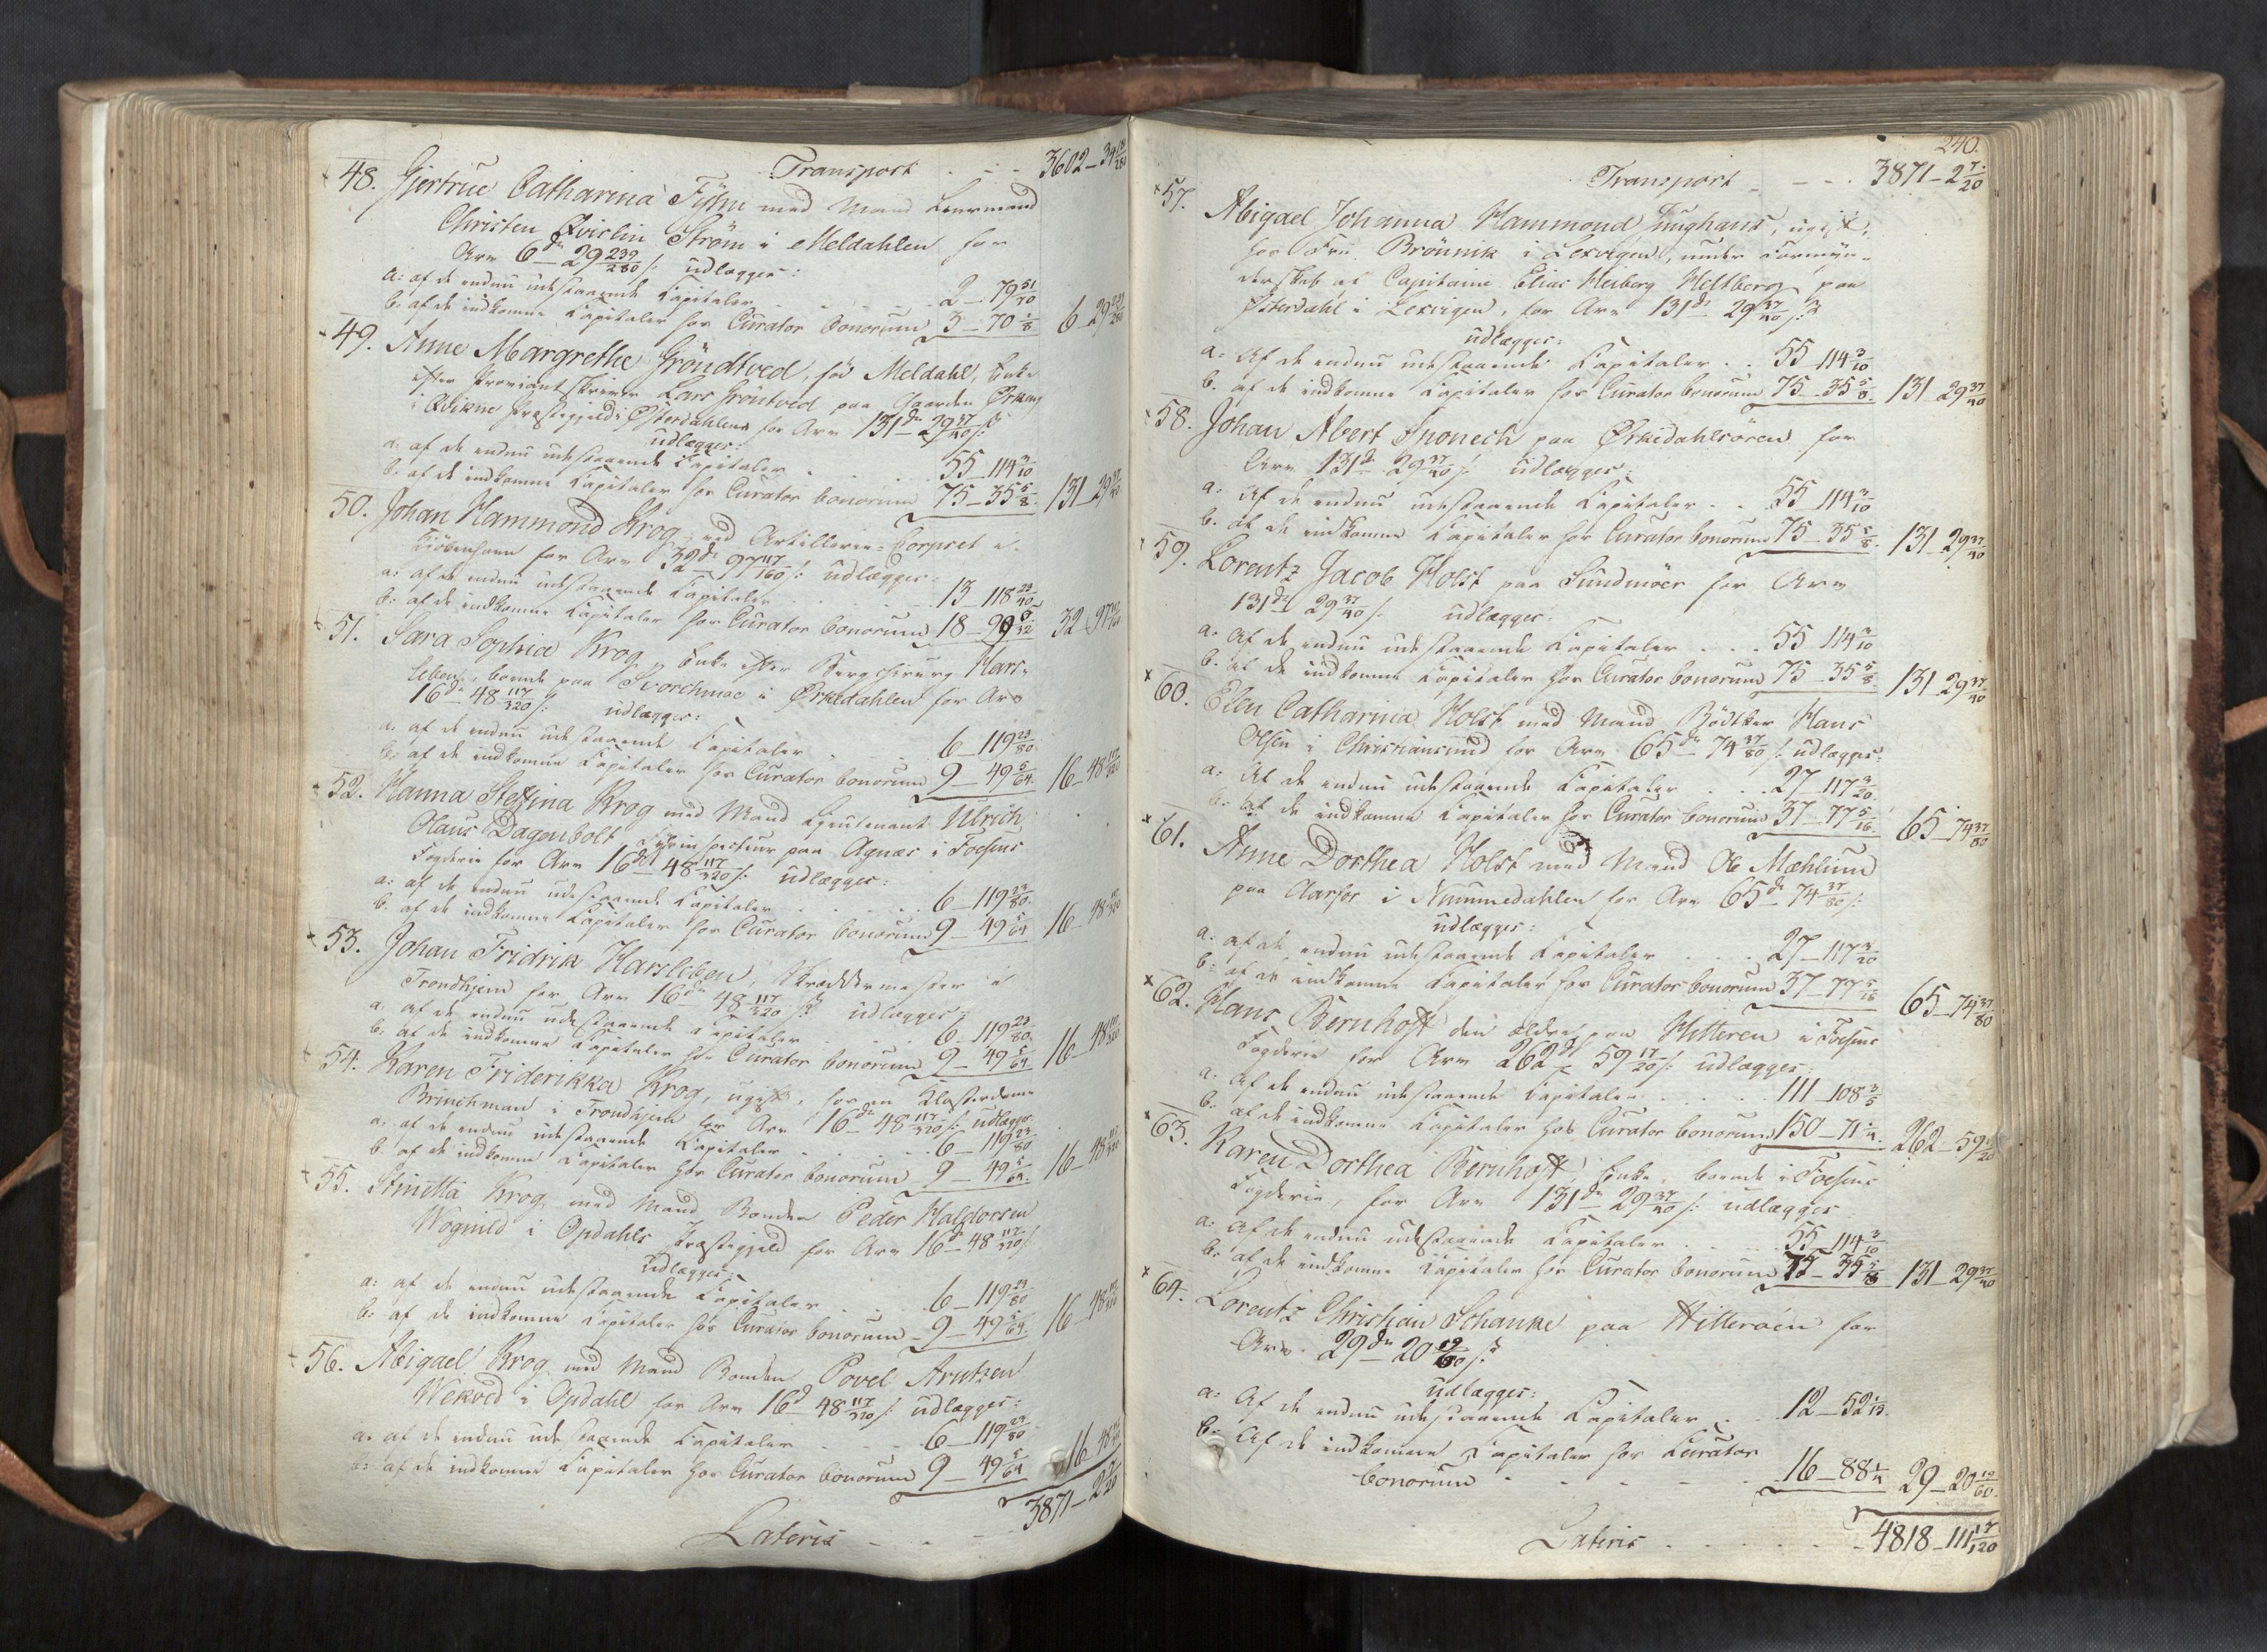 Transport - - - 3602 - 34
48. Gjertrue Catharina Tyhn med Mand Leermand
Christen Qvislin Ström i Meldahlen for
Arv 6 dr 29 239/280 s: udlægges:
a: af de endnu udestaaende Capitaler - - - 2 - 79 51/70
b. af de indkomne Capitaler hos Curator bonorum 3 - 70 1/8 6 - 29 239/280
49. Anne Margrethe Gröndtved, fød Meldahl, Enke
efter Proviantskriver Lars Gröntved paa Gaarden
i Qvikne Præstegjeld i Østerdahlen for Arv 131 dr 29 37/40 s:
udlægges:
a. af de endnu udestaaende Capitaler . 55 - 114 3/10
b. af de indkomne Capitaler hos Curator bonorum 75 - 35 5/8 131 - 29 37/40
50. Johan Hammond Krog, ved Artillerie-Corpset i
Kiöbenhavn for Arv 32 dr 97 117/160 s: udlægges:
a: af de endnu udestaaende Capitaler - - - 13 - 118 23/40
b: af de indkomne Capitaler hos Curator bonorum 18 - 99 5/32 32 - 97 117/160
51. Sara Sophia Krog, Enke efter Bergchirurg Hars-
leben, boende paa Svorchmoe i Ørkedahlen for Arv
16 dr 48 117/320 s: udlægges:
a. af de endnu udestaaende Capitaler . . . 6 - 119 23/80
b: af de indkomne Capitaler hos Curator bonorum 9 - 49 5/64 16 - 48 117/320
52. Hanna Steffina Krog med Mand Lieutenant Ulrich
Olaus Dagenbolt Tylvinspecteur paa Agnæs i Foesens
Fogderie for Arv 16 dr 48 117/320 s: udlægges:
a: af de endnu udestaaende Capitaler . . . 6 - 119 23/80
b. af de indkomne Capitaler hos Curator bonorum 9 - 49 5/64 16 - 48 117/320
53. Johan Fridrik Harsleben, Skreddermester i
Trondhjem for Arv 16 dr 48 117/320 s: udlægges:
a. af de endnu udestaaende Capitaler . . . 6 - 119 23/80
b: af de indkomne Capitaler hos Curator bonorum 9 - 49 5/64 16 - 48 117/320
54. Karen Friderikka Krog, ugift, hos en Klosterdame
Brinchman i Trondhjem for Arv 16 dr 48 117/320 s: udlægges
a: af de endnu udestaaende Capitaler . . . 6 - 119 23/80
b. af de indkomne Capitaler hos Curator bonorum 9 - 49 5/64 16 - 48 117/320
55. Stinetta Krog med Mand Bonden Peder Haldorsen
Wognild i Opdahls Præstegjeld for Arv 16 d 48 117/320 s
udlægges:
a: af de endnu udestaaende Capitaler . . . 6 - 119 23/80
b: af de indkomne Capitaler hos Curator bonorum 9 - 49 5/64 16 - 48 117/320
56. Abigael Krog med Mand Bonden Povel Arntzen
Wekved i Opdahl for Arv 16 d 48 117/320 s: udlægges:
a. af de endnu udestaaende Capitaler . . . 6 - 119 23/80
b: af de indkomne Capitaler hos Curator bonorum 9 - 49 5/64 16 - 48 117/320
Lateris - - - 3871 - 2 7/20
240.
Transport - - - 3871 - 2 7/20
57. Abigael Johanna Hammond Junghans, ugift,
hos Frü Brönnik i Lexvigen, under Formyn-
derskab af Capitaine Elias Heiberg Heltberg paa
Østerdahl i Lexvigen, for Arv 131 dr 29 37/40 s:
udlægges:
a: Af de endnu udestaaende Capitaler . . 55 - 114 3/10
b. af de indkomne Capitaler hos Curator bonorum 75 - 35 5/8 131 - 29 37/40
58. Johan Abert Sponech paa Ørkedahlsören for
Arv 131 dr 29 37/40 s: udlægges:
a. Af de endnu udestaaende Capitaler . . 55 - 114 3/10
b. af de indkomne Capitaler hos Curator bonorum 75 - 35 5/8 131 - 29 37/40
59. Lorentz Jacob Holst paa Sundmöer for Arv
131 dr 29 37/40 s: udlægges:
a. Af de endnu udestaaende Capitaler . . . 55 - 114 3/10
b. af de indkomne Capitaler hos Curator bonorum 75 - 35 5/8 131 - 29 37/40
60. Ellen Catharina Holst med Mand Bödtker Hans
Olsen i Christiansund for Arv 65 dr 74 37/80 s: udlægges:
a: Af de endnu udestaaende Capitaler . . . 27 - 117 3/20
b. af de indkomne Capitaler hos Curator bonorum 37 - 77 5/16 65 - 74 37/80
61. Anne Dorthea Holst med Mand Ole Mæhlum
paa Aarfor i Nummedahlen for Arv 65 dr 74 37/80 s:
udlægges:
a. af de endnu udestaaende Capitaler . . . 27 - 117 3/20
b: af de indkomne Capitaler hos Curator bonorum 37 - 77 5/16 65 - 74 37/80
62. Hans Bernhoft den ældre paa Hitteren i Foesens
Fogderie for Arv 262 dr 59 17/20 s: udlægges:
a. af de endnu udestaaende Capitaler . . . 111 - 108 3/5
b. af de indkomne Capitaler hos Curator bonorum 150 - 71 1/4 262 - 59 17/20
63. Karen Dorthea Bernhoft, Enke, boende i Foesens
Fogderie, for Arv 131 dr 29 37/40 s: udlægges:
a: Af de endnu udestaaende Capitaler . . . 55 - 114 3/10
b. af de indkomne Capitaler hos Curator bonorum 75 - 35 5/8 131 - 29 37/40
64. Lorentz Christian Schanke paa Hitteröen for
Arv 29 dr 20 19/60 s:
udlægges:
a: Af de endnu udestaaende Capitaler . . 12 - 52 1/15
b: Af de indkomne Capitaler hos Curator
bonorum - - - 16 - 88 1/4 29 - 20 19/60
Lateris . . . 4818 - 111 17/120